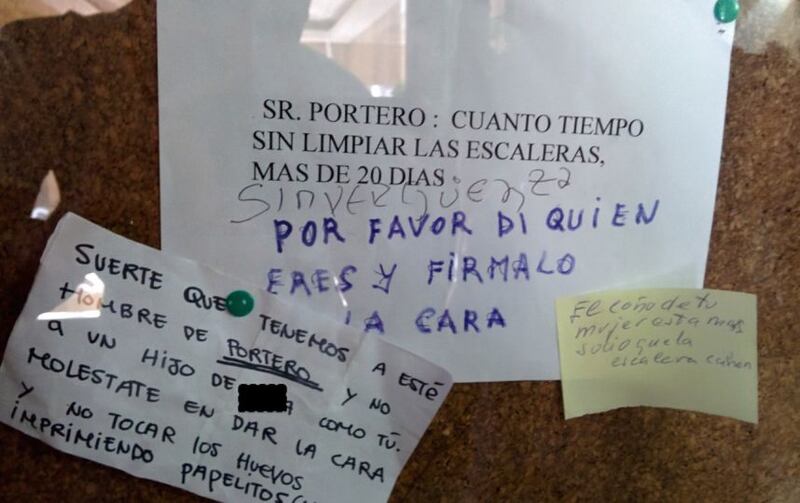 SR. PORTERO : CUANTO TIEMPO
SIN LIMPIAR LAS ESCALERAS,
MAS DE 20 DIAS .
SINVERGÜENZA
POR FAVOR DI QUIEN
ERES Y FÍRMALO
LA CARA
SUERTE QUE TENEMOS A ESTÉ
HOMBRE DE PORTERO Y NO
A UN HIJO DE COMO TÚ.
MOLESTATE EN DAR LA CARA
Y NO TOCAR LOS HUEVOS
IMPRIMIENDO PAPELITOS
El coño de tu
mujer esta mas
sucio que la
escalera